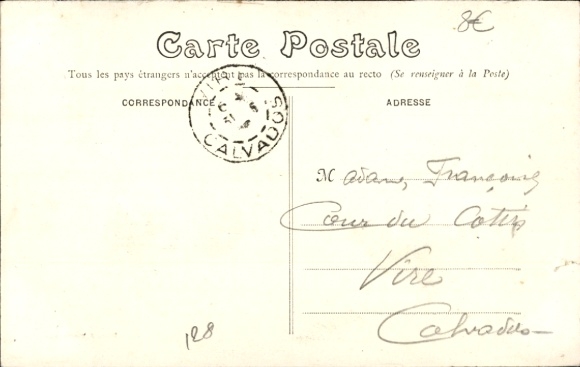 8€
Carte Postale
Tous les pays étrangers n'acceptent pas la correspondance au recto (Se renseigner à la Poste)
CORRESPONDANCE
ADRESSE
VIRE
CALVADOS
Madame Françoise
Cour du Cotin
Vire
Calvados
128